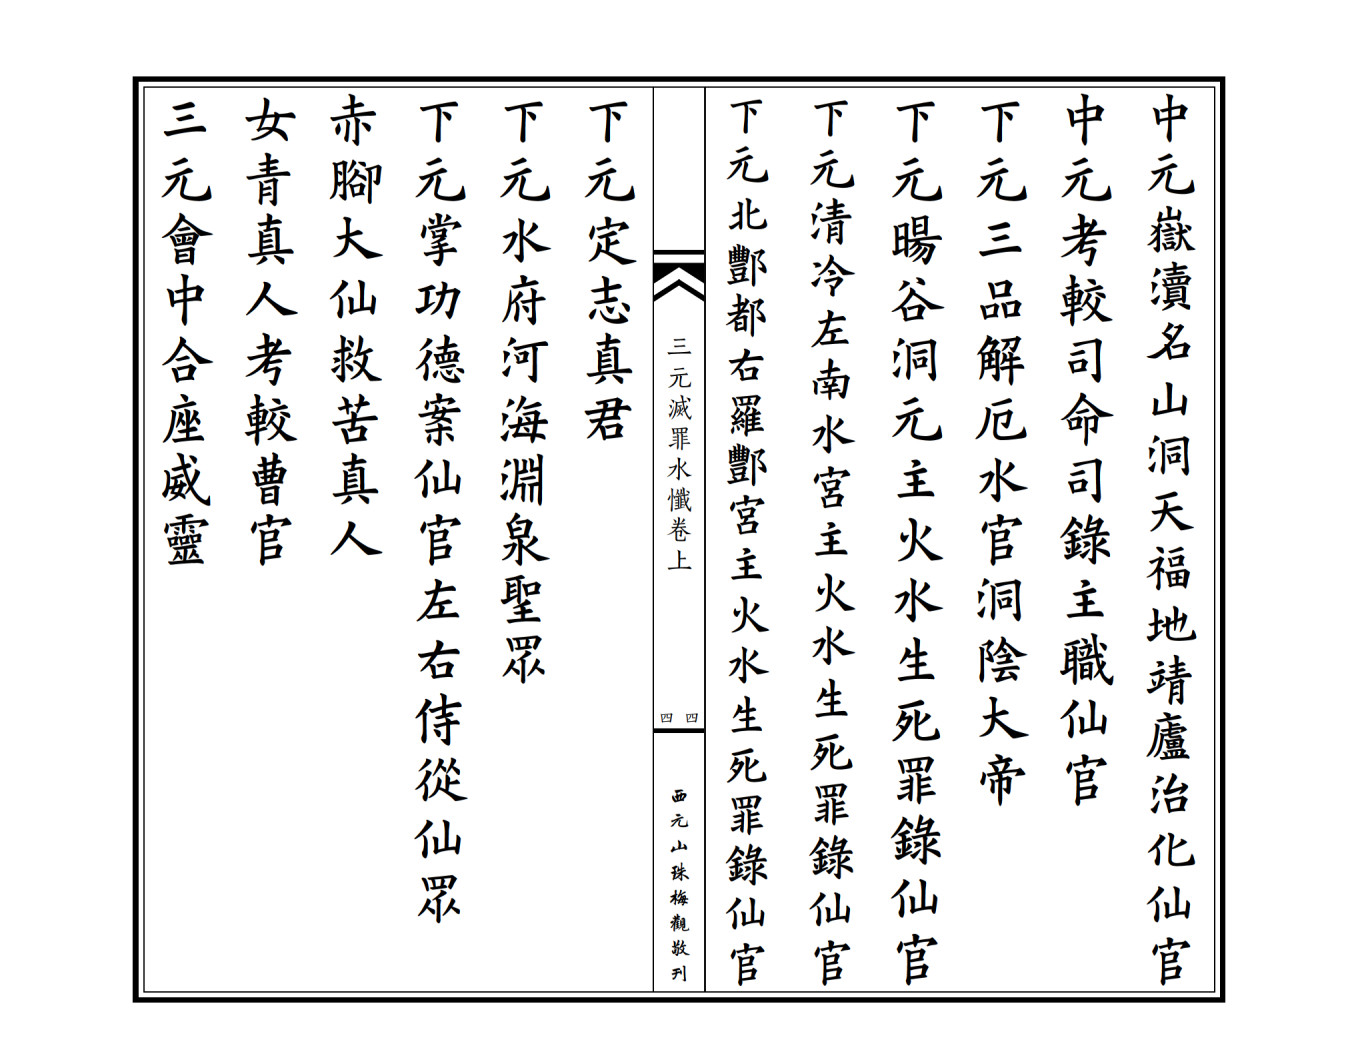 中元嶽瀆名山洞天福地靖廬治化仙官
中元考較司命司錄主職仙官
下元三品解厄水官洞陰大帝
下元暘谷洞元主火水生死罪錄仙官
下元清冷左南水宮主火水生死罪錄仙官
下元北酆都右羅酆宮主火水生死罪錄仙官
三元滅罪水懺卷上
四四
西元山珠梅觀敬刋
下元定志真君
下元水府河海淵泉聖眾
下元掌功德案仙官左右侍從仙眾
赤腳大仙救苦真人
女青真人考較曹官
三元會中合座威靈